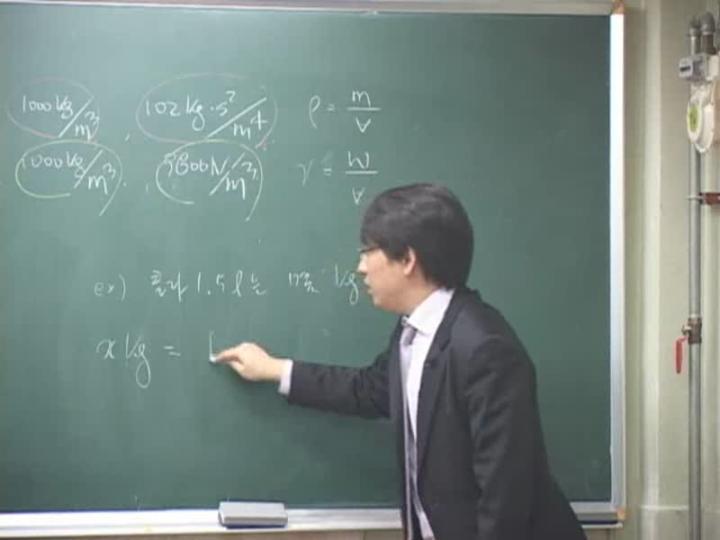 1000 kg/m³ , 102 kg·s²/m⁴ ρ = m/V
1000 kg/m³ , 9800 N/m³ γ = W/V
ex) 1.5ℓ는 kg
x kg = 1